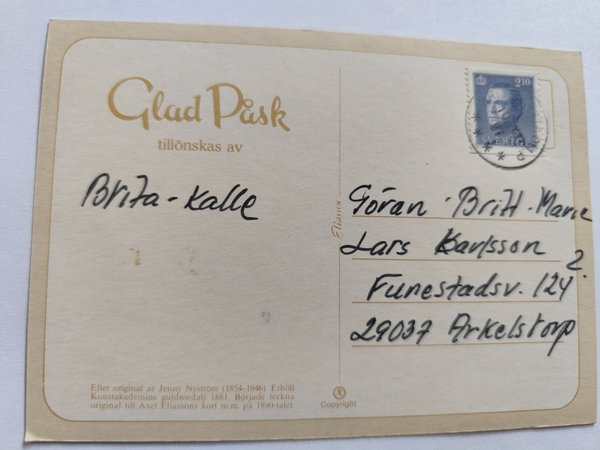 Glad Påsk
tillönskas av
Brita-Kalle
2.10
SVERIGE
Göran - Britt-Marie
Lars Karlsson
Funestadsv. 124 2.
29037 Arkelstorp
Eliassons
Efter original av Jenny Nyström (1854-1946). Erhöll
Konstakademins guldmedalj 1881. Började teckna
original till Axel Eliassons kort m.m. på 1890-talet.
Copyright